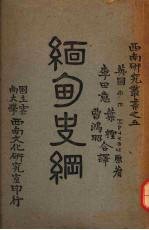 西南研究叢書之五
英國 G E Harvey 原著
李田意 葉檉 曹鴻昭 合譯
緬甸史綱
國立雲南大學西南文化研究室印行